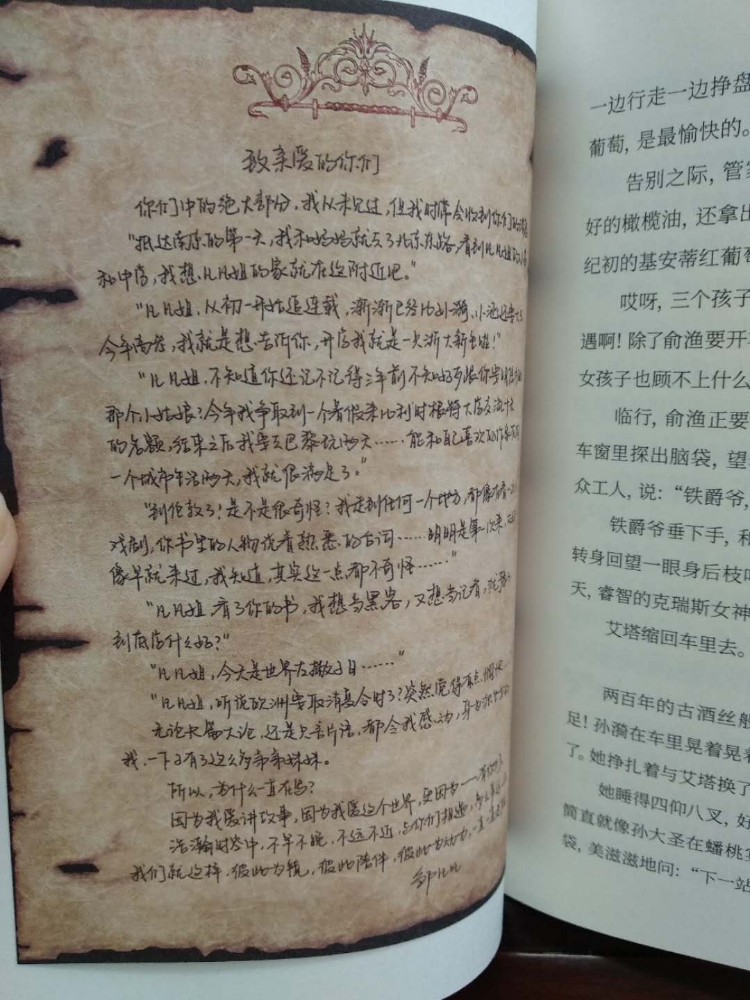 致亲爱的你们
你们中的绝大部分，我从未见过，但我时常会收到你们的
"抵达南京的第一天，我和妈妈就去了北京东路，看到
和中店，我想，凡凡姐的家就在这附近吧。"
"凡凡姐，从初一开始追连载，渐渐已经比孙漪、小
今年高考，我就是想告诉你，开店我就是一大浙大新生啦！"
"凡凡姐，不知道你还记不记得三年前不知好歹跟你
那个小姑娘？今年我争取到一个暑假来比利时根特大店交流
的名额，结束之后我要去巴黎玩两天……能和自己喜欢的作家
一个城市生活两天，我就很满足了。"
"别伦敦了！是不是很奇怪？我走到任何一个地方，都像有
戏剧，你书里的人物说着熟悉的台词……明明是第一次来，
像早就来过，我知道，其实这一点都不奇怪……"
"凡凡姐，看了你的书，我想当黑客，又想当记者，
到底店什么好？"
"凡凡姐，今天是世界左撇子日……"
"凡凡姐，听说欧洲要取消夏令时了？突然觉得有点
无论长篇大论，还是只言片语，都令我感动，
我一下子有了这么多弟弟妹妹。
所以，为什么一直在写？
因为我爱讲故事，因为我爱这个世界，更因为——有你们
浩瀚时空中，不早不晚，不远不近，与你们相遇，
我们就这样，彼此为镜，彼此陪伴，彼此为动力，一直
邹凡凡
一边行走一边挣盘
葡萄，是最愉快的。
告别之际，管家
好的橄榄油，还拿出
纪初的基安蒂红葡萄
哎呀，三个孩子
遇啊！除了俞渔要开车
女孩子也顾不上什么
临行，俞渔正要
车窗里探出脑袋，望
众工人，说："铁爵爷，
铁爵爷垂下手，和
转身回望一眼身后枝叶
天，睿智的克瑞斯女神
艾塔缩回车里去。
两百年的古酒丝般
足！孙漪在车里晃着晃着
了。她挣扎着与艾塔换了
她睡得四仰八叉，好
简直就像孙大圣在蟠桃宴
袋，美滋滋地问："下一站